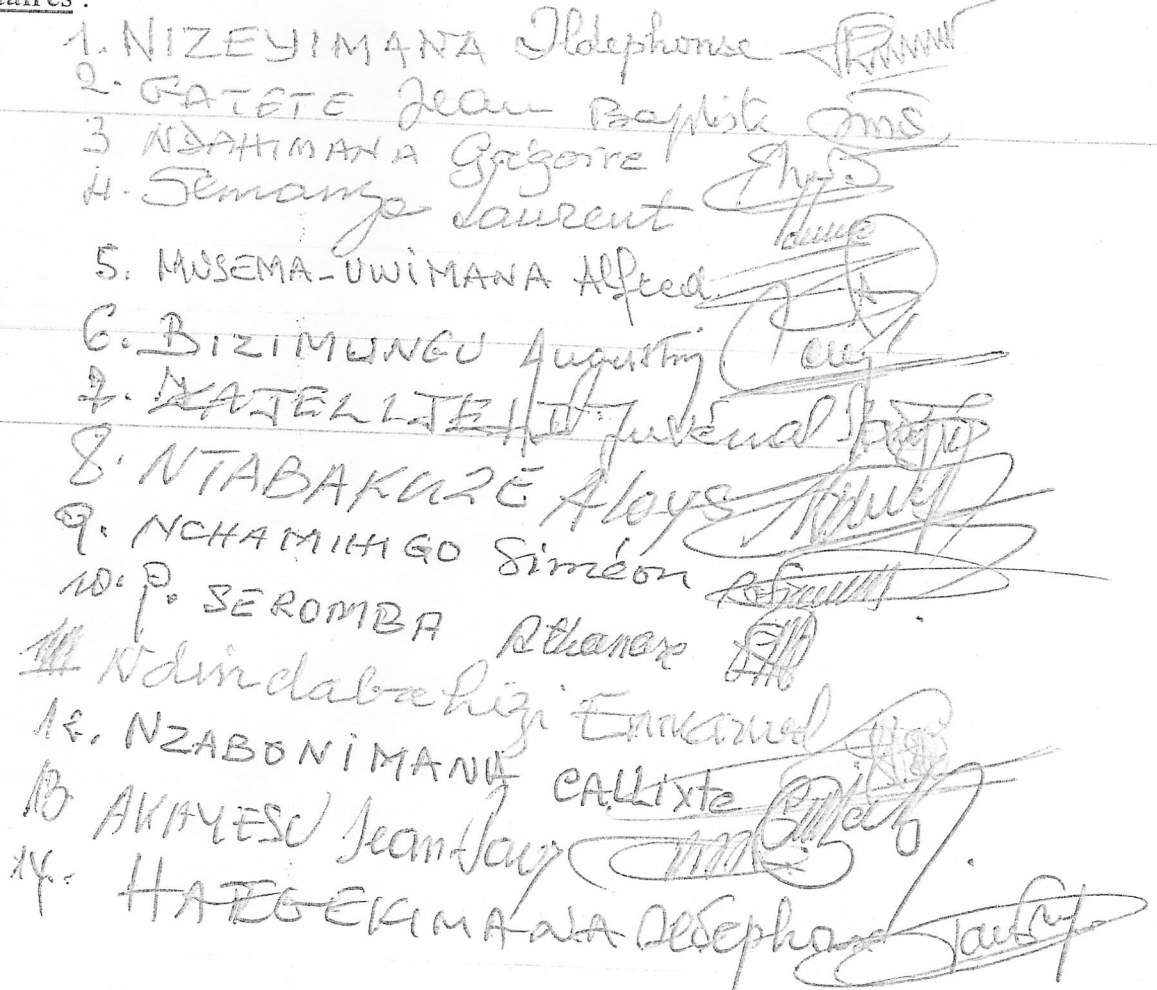 aires :
1. NIZEYIMANA Ildephonse
2. GATETE Jean Baptiste
3 NDAHIMANA Grégoire
4. Semanza Laurent
5. MUSEMA-UWIMANA Alfred
6. BIZIMUNGU Augustin
7. KAJELIJELI Juvénal
8. NTABAKUZE Aloys
9. NCHAMIHIGO Siméon
10. P. SEROMBA Athanase
Ndindabahizi Emmanuel
12. NZABONIMANA CALLixte
13 AKAYESU Jean Paul
14. HATEGEKIMANA Ildephonse